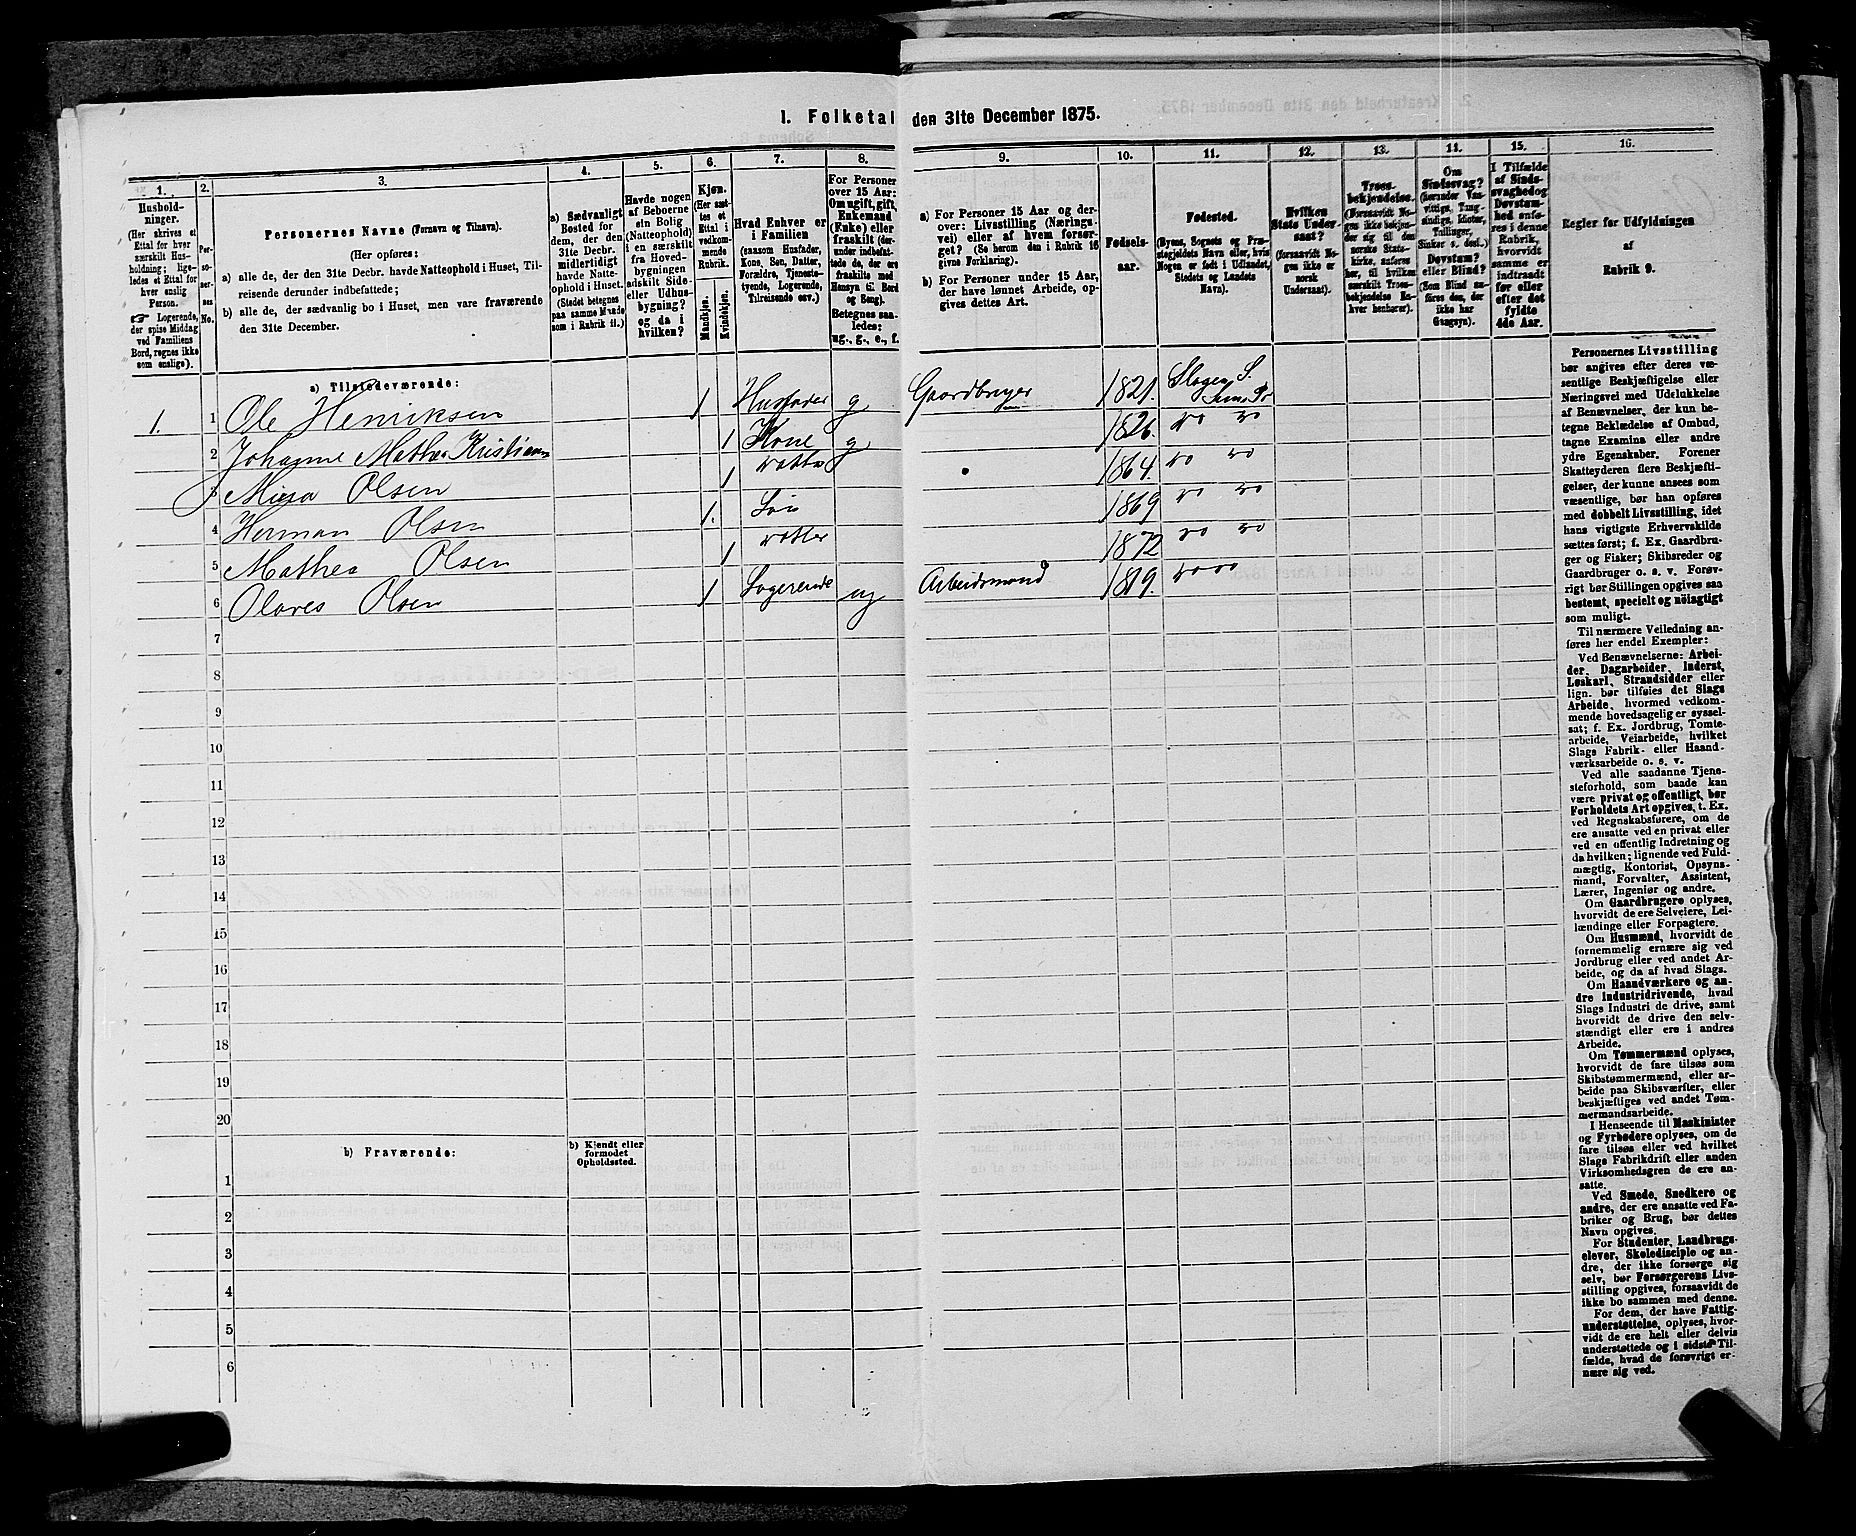 1. Folketal den 31te December 1875.
1.
2.
3.
4.
5.
6.
7.
8.
9.
10.
11.
12.
13.
14.
15.
16.
Hushold-
ninger.
(Her skrives et
Ettal for hver
særskilt Hus-
holdning; lige-
ledes et Ettal for
hver enslig
Person.
☞ Logerende,
der spise Middag
ved Familiens
Bord, regnes ikke
som enslige).
Per-
so-
ner-
nes
No.
Personernes Navne (Fornavn og Tilnavn).
(Her opføres:
a) alle de, der den 31te Decbr. havde Natteophold i Huset, Til-
reisende derunder indbefattede;
b) alle de, der sædvanlig bo i Huset, men vare fraværende
den 31te December.
a) Sædvanligt
Bosted for
dem, der den
31te Decbr.
midlertidigt
havde Natte-
ophold i Huset.
(Stedet betegnes
paa samme Maade
som i Rubrik 11.)
Havde nogen
af Beboerne
sin Bolig
(Natteophold)
i en særskilt
fra Hoved-
bygningen
adskilt Side-
eller Udhus-
bygning?
og da i
hvilken?
Kjøn.
(Her sæt-
tes et
Ettal i
vedkom-
mende
Rubrik.
Mandkjøn.
Kvindekjøn.
Hvad Enhver er
i Familien
(saasom Husfader,
Kone, Søn, Datter,
Forældre, Tjeneste-
tyende, Logerende,
Tilreisende osv.)
For Personer
over 15 Aar:
Om ugift, gift,
Enkemand
(Enke) eller
fraskilt (der-
under indbefat-
tede de, der ere
fraskilte med
Hensyn til Bord
og Seng).
Betegnes saa-
ledes:
ug., g., e., f.
a) For Personer 15 Aar og der-
over: Livsstilling (Nærings-
vei) eller af hvem forsør-
get? (Se herom den i Rubrik 16
givne Forklaring).
b) For Personer under 15 Aar,
der have lønnet Arbeide, op-
gives dettes Art.
Fødsels-
aar.
Fødested.
(Byens, Sognets og Præ-
stegjeldets Navn eller, hvis
Nogen er født i Udlandet,
Stedets og Landets
Navn).
Hvilken
Stats Under-
saat?
(forsaavidt No-
gen ikke er
norsk
Undersaat).
Troes-
bekjendelse.
(Forsaavidt No-
gen ikke bekjen-
der sig til den
norske Stats-
kirke, anføres
her, til hvilken
særskilt Troes-
bekjendelse En-
hver henhører).
Om
Sindssvag?
(herunder Van-
vittige, Tung-
sindige, Idioter,
Tullinger,
Sinker o. desl.)
Døvstum?
eller Blind?
(Som Blind an-
føres den, der
ikke har
Gangsyn).
I Tilfælde
af Sinds-
svaghed og
Døvstum-
hed anfø-
res i denne
Rubrik,
hvorvidt
samme er
indtraadt
før eller
efter det
fyldte
4de Aar.
Regler for Udfyldningen
af
Rubrik 9.
a) Tilstedeværende:
1. 1 Ole Henriksen 1 Husfader g Gaardbruger 1821. Slagen S. Sem Pr
2 Johanne Mathea Kristian 1 Kone g 1826. do do
3 Miga Olsen 1 datter 1864. do do
4 Herman Olsen 1. Søn 1869 do do
5 Mathea Olsen 1 datter 1872 do do
6 Olaves Olsen 1 Logerende ug Arbeidsmand 1819. do do
7
8
9
10
11
12
13
14
15
16
17
18
19
20
b) Fraværende:
b) Kjendt eller
formodet
Opholdssted.
1
2
3
4
5
6
Personernes Livsstilling
bør angives efter deres væ-
sentlige Beskjæftigelse eller
Næringsvei med Udelukkelse
af Benævnelser, der kun be-
tegne Beklædelse af Ombud,
tagne Examina eller andre
ydre Egenskaber. Forener
Skatteyderen flere Beskjæfti-
gelser, der kunne ansees som
væsentlige, bør han opføres
med dobbelt Livsstilling, idet
hans vigtigste Erhvervskilde
sættes først; f. Ex. Gaardbru-
ger og Fisker; Skibsreder og
Gaardbruger o. s. v. Forøv-
rigt bør Stillingen opgives saa
bestemt, specielt og nöiagtigt
som muligt.
Til nærmere Veiledning an-
føres her endel Exempler:
Ved Benævnelserne: Arbei-
der, Dagarbeider, Inderst,
Løskarl, Strandsidder eller
lign. bør tilføies det Slags
Arbeide, hvormed vedkom-
mende hovedsagelig er syssel-
sat; f. Ex. Jordbrug, Tomte-
arbeide, Veiarbeide, hvilket
Slags Fabrik- eller Haand-
værksarbeide o. s. v.
Ved alle saadanne Tjene-
steforhold, som baade kan
være privat og offentligt, bør
Forholdets Art opgives, t. Ex.
ved Regnskabsførere, om de
ere ansatte ved en privat eller
ved en offentlig Indretning og
da hvilken; lignende ved Fuld-
mægtig, Kontorist, Opsyns-
mand, Forvalter, Assistent,
Lærer, Ingeniør og andre.
Om Gaardbrugere oplyses,
hvorvidt de ere Selveiere, Lei-
lændinge eller Forpagtere.
Om Husmænd, hvorvidt de
fornemmelig ernære sig ved
Jordbrug eller ved andet Ar-
beide, og da af hvad Slags.
Om Haandværkere og an-
dre industridrivende, hvad
Slags Industri de drive, samt
hvorvidt de drive den selv-
stændigt eller ere i andres
Arbeide.
Om Tømmermænd oplyses,
hvorvidt de fare tilsøs som
Skibstømmermænd, eller ar-
beide paa Skibsværfter, eller
beskjæftiges ved andet Tøm-
mermandsarbeide.
I Henseende til Maskinister
og Fyrbødere oplyses, om de
fare tilsøs eller ved hvilket
Slags Fabrikdrift eller anden
Virksomhedsgren de ere an-
satte.
Ved Smede, Snedkere og
andre, der ere ansatte ved Fa-
briker og Brug, bør dettes
Navn opgives.
For Studenter, Landbrugs-
elever, Skoledisciple og an-
dre, der ikke forsørge sig
selv, bør Forsørgerens Livs-
stilling opgives, forsaavidt de
ikke bo sammen med denne.
For dem, der have Fattig-
understøttelse, oplyses, hvor-
vidt de ere helt eller delvis
understøttede og i sidste Til-
fælde, hvad de forøvrigt er-
nære sig ved.